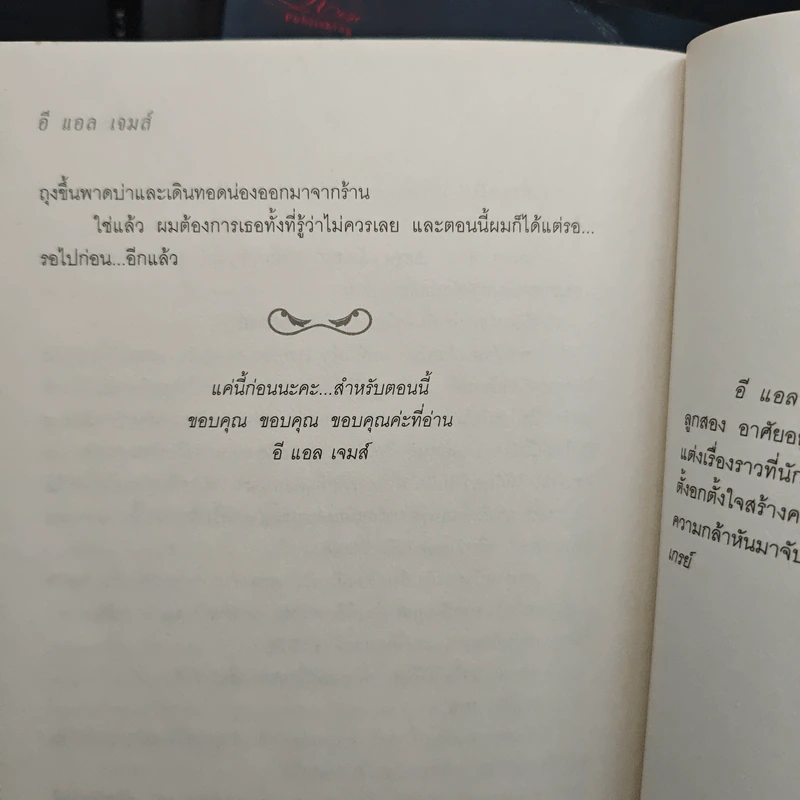 Publishing
อี แอล เจมส์
ถุงขึ้นพาดบ่าและเดินทอดน่องออกมาจากร้าน
ใช่แล้ว ผมต้องการเธอทั้งที่รู้ว่าไม่ควรเลย และตอนนี้ผมก็ได้แต่รอ...
รอไปก่อน...อีกแล้ว
แค่นี้ก่อนนะคะ...สำหรับตอนนี้
ขอบคุณ ขอบคุณ ขอบคุณค่ะที่อ่าน
อี แอล เจมส์
อี แอล
ลูกสอง อาศัย
แต่งเรื่องราวที่นัก
ตั้งอกตั้งใจสร้าง
ความกล้าหันมาจับ
เกรย์